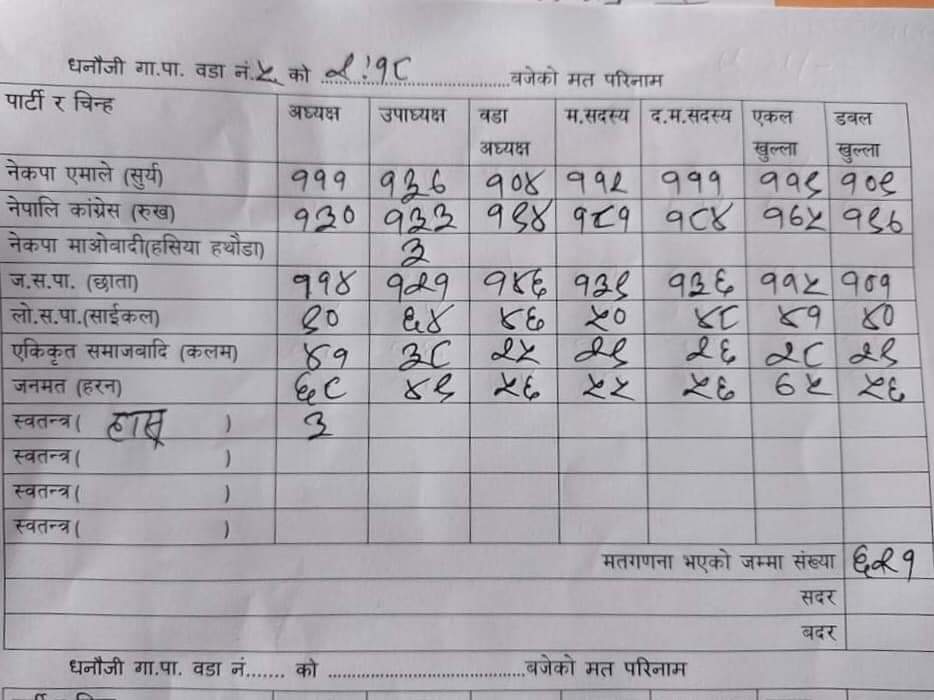 धनौजी गा.पा. वडा नं.५ को २:१८ बजेको मत परिनाम
पार्टी र चिन्ह अध्यक्ष उपाध्यक्ष वडा अध्यक्ष म.सदस्य द.म.सदस्य एकल खुल्ला डबल खुल्ला
नेकपा एमाले (सुर्य) १११ १३७ १०४ ११२ १११ ११९ १०९
नेपालि कांग्रेस (रुख) १३० १३३ १९४ १८१ १८४ १६५ १९७
नेकपा माओवादी(हसिया हथौडा) ३
ज.स.पा. (छाता) ११४ १२१ १४६ १३९ १३६ ११५ १०१
लो.स.पा.(साईकल) ९० ६४ ४६ ५० ४८ ४१ ४०
एकिकृत समाजवादि (कलम) ४१ ३८ २५ २९ २६ २८ २९
जनमत (हरन) ६८ ४९ ५६ ५५ ५६ ७५ ५६
स्वतन्त्र( हासू ) ३
स्वतन्त्र( )
स्वतन्त्र( )
स्वतन्त्र( )
मतगणना भएको जम्मा संख्या ६२१
सदर
बदर
धनौजी गा.पा. वडा नं....... को ........................................बजेको मत परिनाम